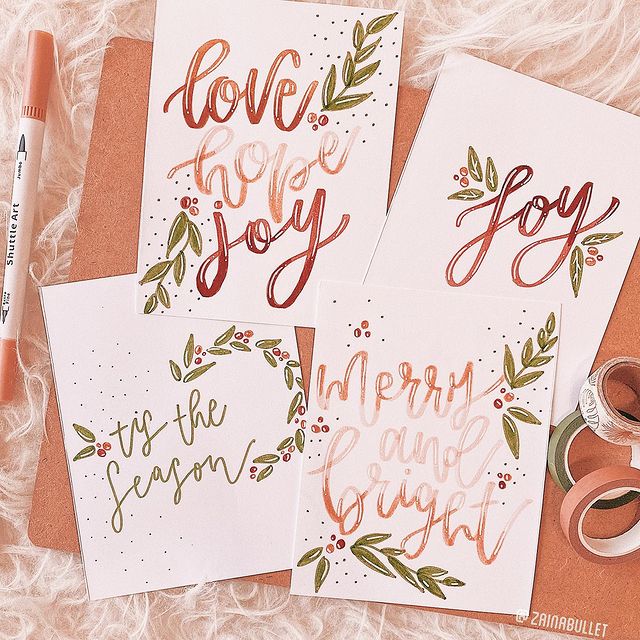 love
hope
joy
Joy
'tis the
Season
Merry
and
bright
Shuttle Art
Jumbo
@ZAINABULLET